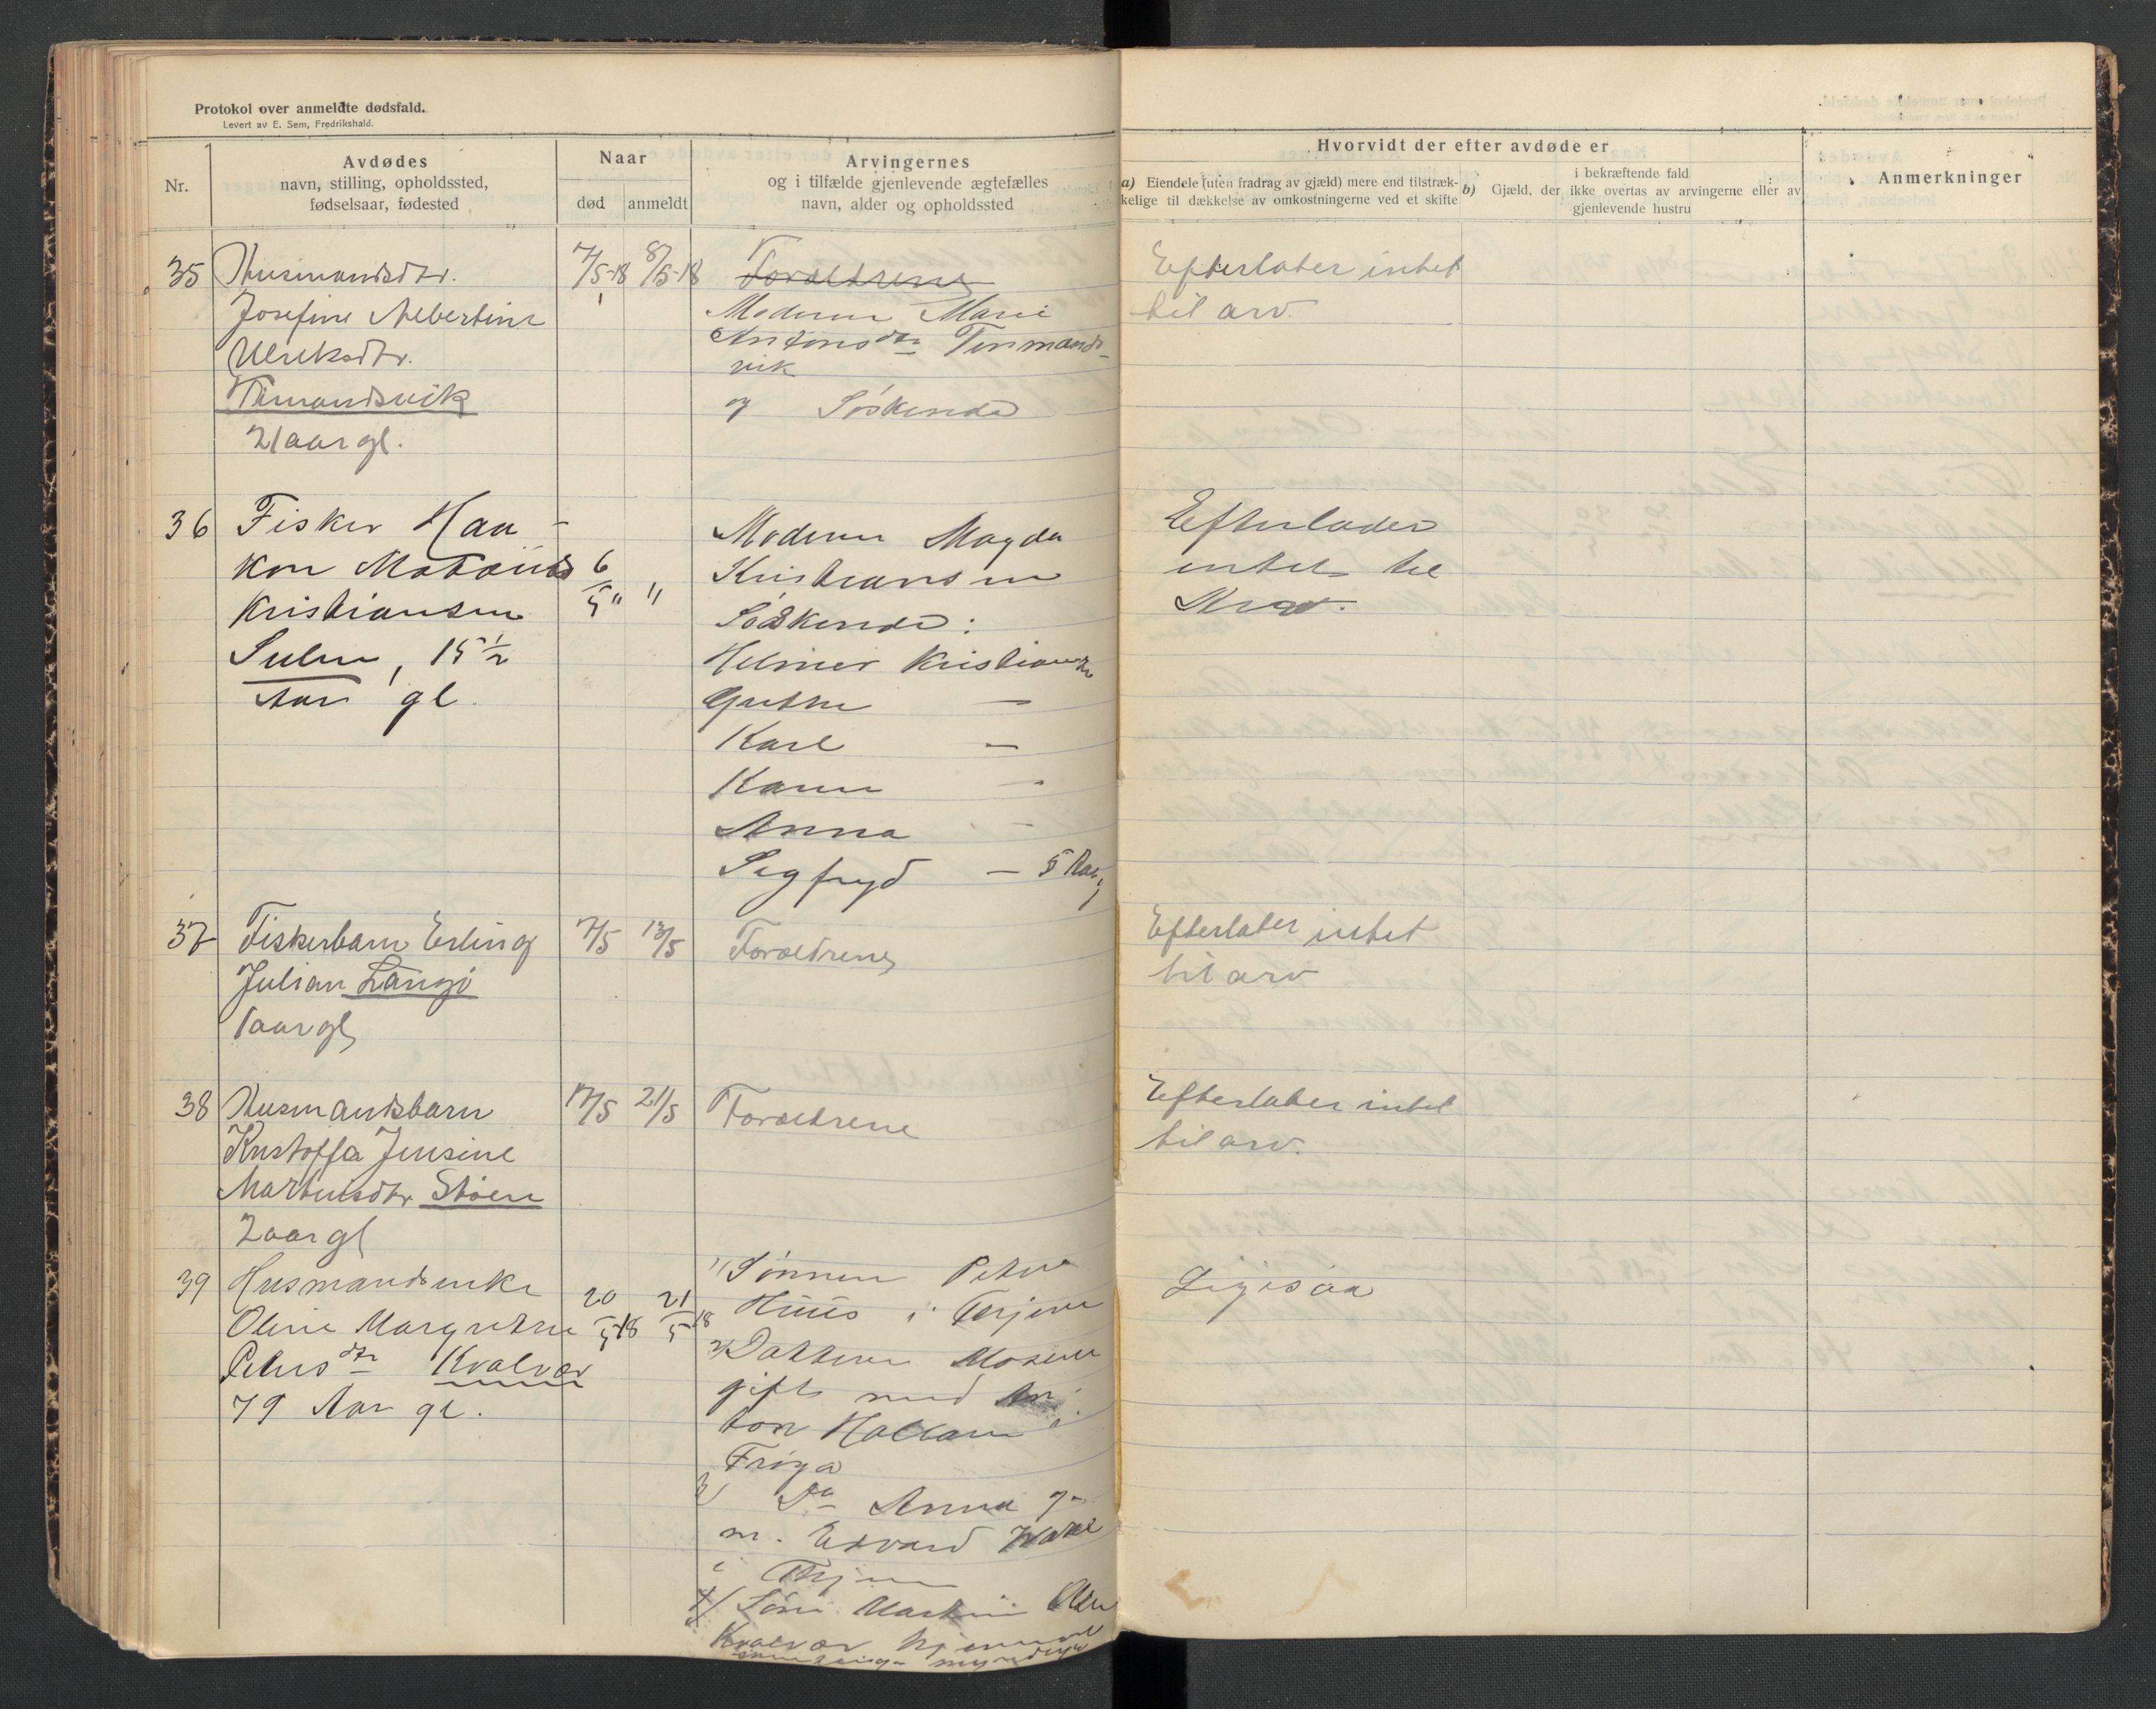 Protokol over anmeldte dødsfald.
Levert av E. Sem, Fredrikshald.
Nr.
Avdødes
navn, stilling, opholdssted,
fødselsaar, fødested
Naar
død
anmeldt
Arvingernes
og i tilfælde gjenlevende ægtefælles
navn, alder og opholdssted
Hvorvidt der efter avdøde er
a) Eiendele (uten fradrag av gjæld) mere end tilstræk-
kelige til dækkelse av omkostningerne ved et skifte
i bekræftende fald
b) Gjæld, der ikke overtas av arvingerne eller av
gjenlevende hustru
Anmerkninger
35 Husmandsdtr.
Josefine Albertine
Ulriksdtr.
Timandsvik
21 aar gl.
7/5-18 8/5-18
Forældrene
Moderen Marie
Antonsdtr Tinmands-
vik
og Söskende
Efterlater intet
til arv.
36 Fisker Haa-
kon
Kristiansen
Sulen, 15½
Aar gl.
6/5 " "
Moderen Magda
Kristiansen
Södskende:
Helmer Kristiansen
Guthe —
Karl —
Karen —
Anna —
Sigfryd — 5 Aar
Efterlader
intet til
Arv.
37 Fiskerbarn Erling
Julian Langö
1 aar gl
7/5 13/5
Forældrene
Efterlater intet
til arv
38 Husmandsbarn
Kristoffa Jensine
Martinsdtr Støen
2 aar gl
17/5 21/5
Forældrene
Efterlater intet
til arv.
39 Husmandsenke
Oline Margrethe
Petersdtr Kvalvær
79 Aar gl.
20/5 18 21/5 18
1/ Sønnen Peter
Huus i Terjen
2/ Datteren
gift med An-
ton i
Frøya
3/ Do Anna g-
m. Edvard
i
4/ Søn Martin Olsen
Kvalvær
Ligesaa